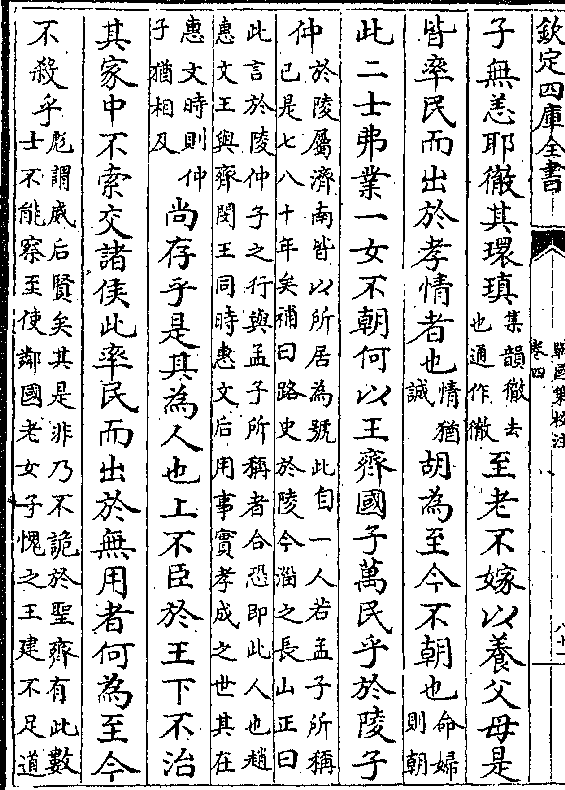 欽定四庫全書
戰國策校注
卷四
子無恙耶徹其環瑱
集韻徹去
也通作徹
至老不嫁以養父母是
皆率民而出於孝情者也
情猶
誠
胡為至今不朝也
命婦
則朝
此二士弗業一女不朝何以王齊國子萬民乎於陵子
仲
於陵屬濟南皆以所居為號此自一人若孟子所稱
已是七八十年矣補曰路史於陵今淄之長山正曰
此言於陵仲子之行與孟子所稱者合恐即此人也趙
惠文王與齊閔王同時惠文后用事實孝成之世其在
惠文時則仲
子猶相及
尚存乎是其為人也上不臣於王下不治
其家中不索交諸侯此率民而出於無用者何為至今
不殺乎
彪謂威后賢矣其是非乃不詭於聖齊有此數
士不能察至使鄰國老女子愧之王建不足道